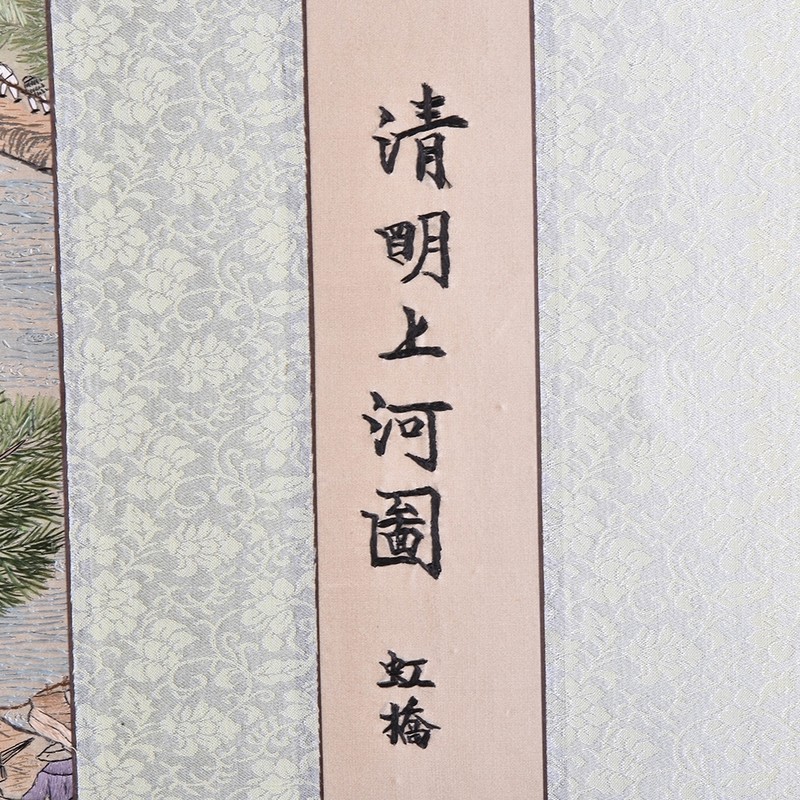 清明上河圖
虹橋